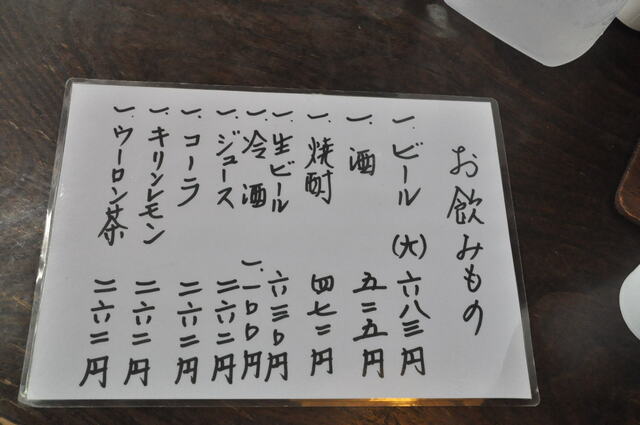 お飲みもの
一.ビール(大)六八三円
一.酒 五二五円
一.焼酎 四七二円
一.生ビール 六三〇円
一.冷酒 一.一〇〇円
一.ジュース 二六二円
一.コーラ 二六二円
一.キリンレモン 二六二円
一.ウーロン茶 二六二円